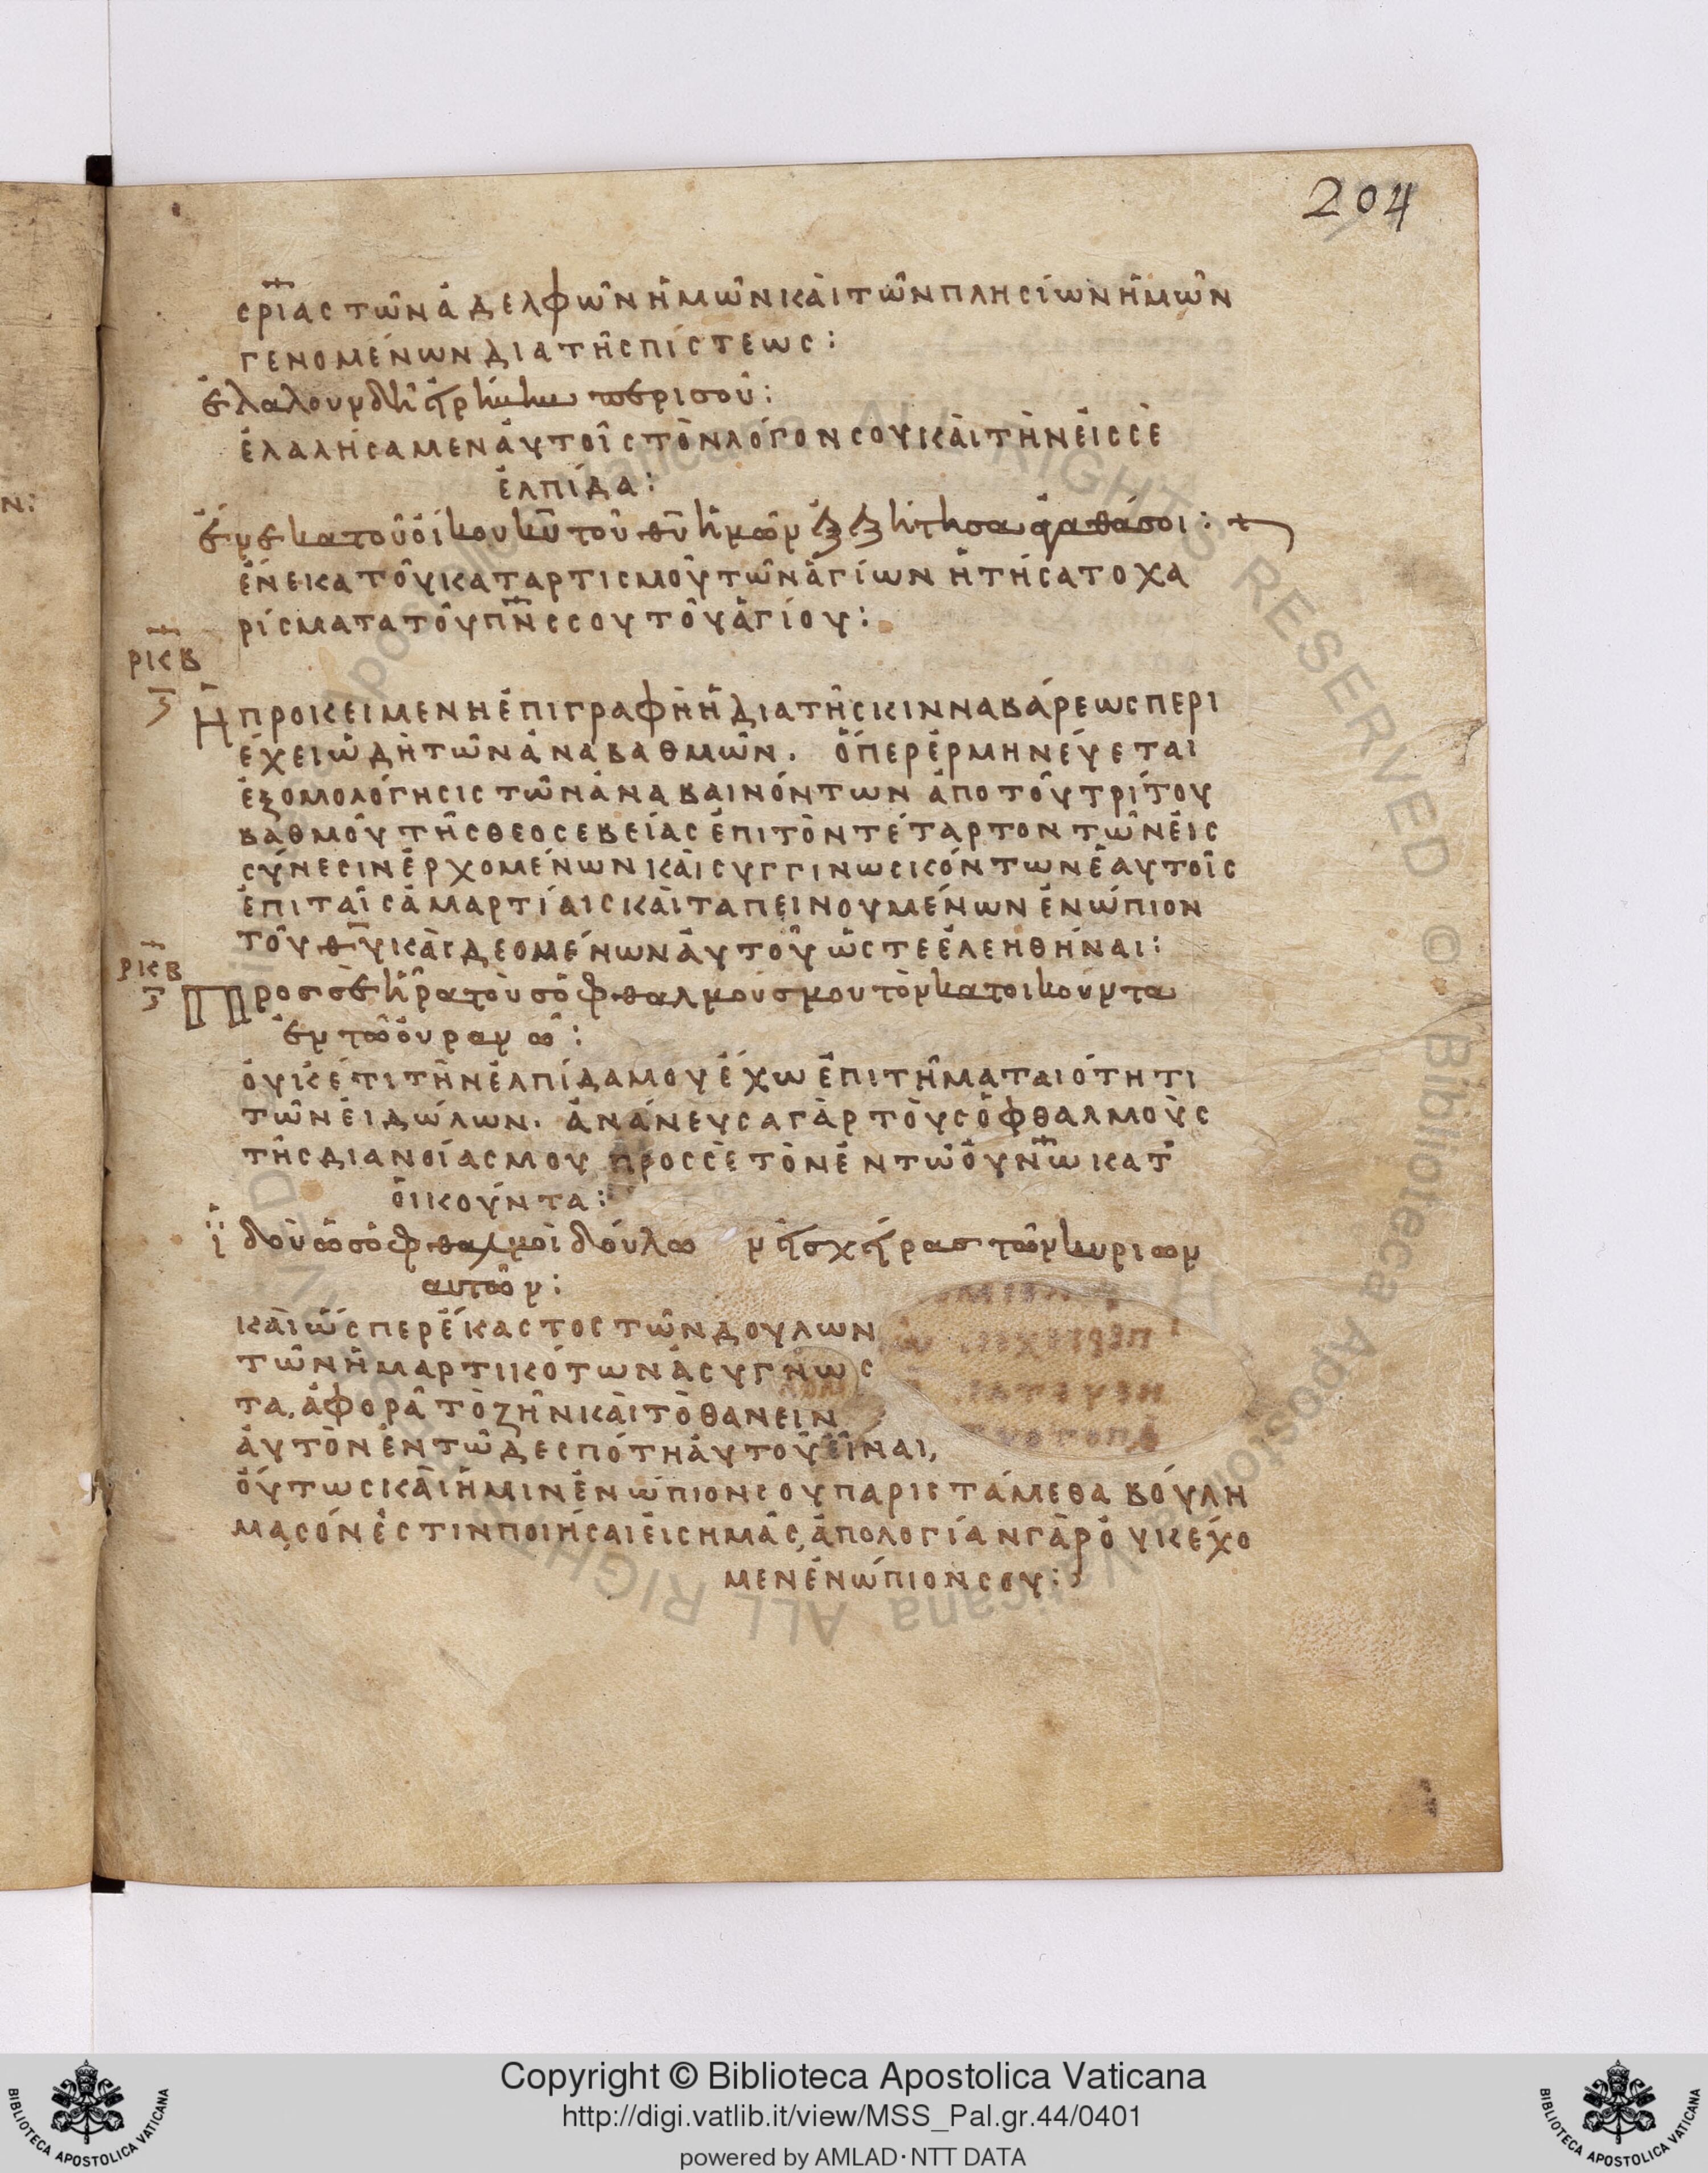 204
σρίας τῶν ἀδελφῶν ἡμῶν καὶ τῶν πλησίων ἡμῶν
γενομένων δια τῆς πίστεως:
ἐλάλουν δὴ εἰρήνην περι σοῦ:
ἐλαλήσαμεν ἀυτοῖς τὸν λόγον σου κὰι τὴν ἐις σὲ
ἐλπίδα:
ἕνεκα τοῦ οἴκου κῡ τοῦ θῡ ἡμῶν ἐξεζήτησα ἀγαθά σοι:
ἕνεκα τοῦ καταρτισμοῦ τῶν ἁγίων ἠτήσατο χα
ρίσματα τοῦ πν̅ς σου τοῦ ἁγίου:
ρκβ
Ἡ προκειμενη ἐπιγραφὴ ἡ δια τῆς κινναβάρεως περι
έχει ὠδὴ τῶν ἀναβαθμῶν. ὅπερ ἑρμηνέυεται
ἐξομολόγησις τῶν ἀναβαινόντων ἀπο τοῦ τρίτου
βαθμοῦ τῆς θεοσεβείας ἐπι τὸν τέταρτον τῶν ἐις
σύνεσιν ἐρχομένων κὰι συγγινωσκόντων ἑαυτοῖς
ἐπι ταῖς ἁμαρτίαις κὰι ταπεινουμένων ἐνώπιον
τοῦ θῡ κὰι δεομένων ἀυτοῦ ὥστε ἐλεηθῆναι:
ρκβ
Προς σὲ ἦρα τοὺς ὀφθαλμούς μου τὸν κατοικοῦντα
ἐν τῶ οὐρανῶ:
ὀυκέτι τὴν ἐλπίδα μου ἔχω ἐπι τῆ ματαιότητι
τῶν ἐιδώλων. ἀνάνευσα γὰρ τοὺς ὀφθαλμοὺς
τῆς διανοίας μου προς σὲ τὸν ἐν τῶ ὀυν̅ω κατ
οικοῦντα:
ἰδοὺ ὡς ὀφθαλμοὶ δούλων εἰς χεῖρας τῶν κυριων
αυτῶν:
κὰι ὥσπερ ἕκαστος τῶν δουλων
τῶν ἡμαρτικότων ἀσυγνωσ
τα, ἀφορᾶ τὸ ζῆν κὰι τὸ θανειν
ἀυτὸν ἐν τῶ δεσπότη ἀυτοῦ ἐῖναι,
ὅυτως κὰι ἡμιν ἐνώπιον σου παριστάμεθα βούλη
μα σόν ἐστιν ποιῆσαι ἐις ημᾶς, ἀπολογίαν γὰρ ὀυκ έχο
μεν ἐνώπιον σου:
Copyright © Biblioteca Apostolica Vaticana
http://digi.vatlib.it/view/MSS_Pal.gr.44/0401
powered by AMLAD·NTT DATA
BIBLIOTECA APOSTOLICA VATICANA
BIBLIOTECA APOSTOLICA VATICANA